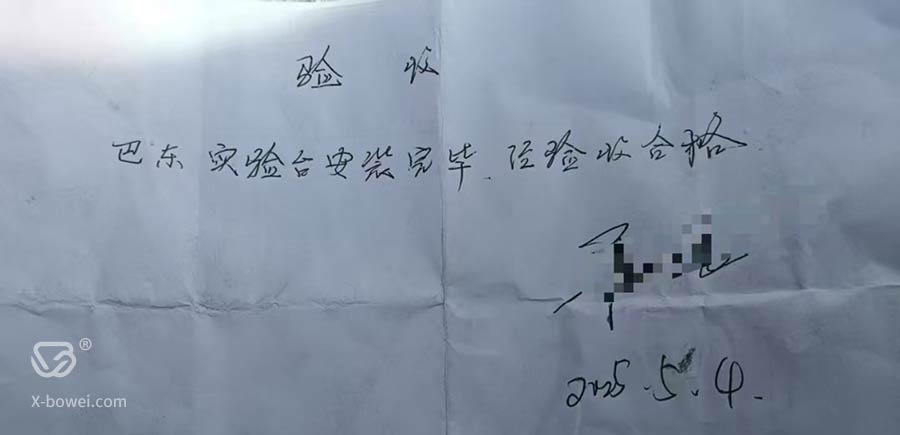 验收
巴东实验台安装完毕.经验收合格.
2025.5.4.
®
X-bowei.com